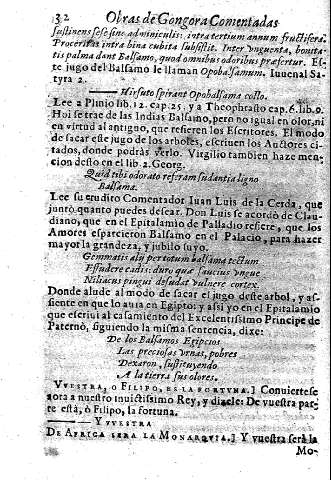 32 Obras de Gongora Comentadas
sustinens sese sine adminiculis: intra tertium annum fructifera.
Proceritas intra bina cubita subsistit. Inter vnguenta, bonita-
tis palma dant Balsamo, quod omnibus odoribus præfertur. Es-
te jugo del Balsamo le llaman Opobalsamum. Iuuenal Sa-
tyra 2.
Hirsuto spirant opobalsama collo.
Lee a Plinio lib. 12. cap. 25, y a Theophrasto cap. 6. lib. 9.
Hoi se trae de las Indias Balsamo, pero no igual en olor, ni
en virtud al antiguo, que refieren los Escritores. El modo
de sacar este jugo de los arboles, escriuen los Auctores ci-
tados, donde podràs verlo. Virgilio tambien haze men-
cion desto en el lib. 2. Georg.
Quid tibi odorato referam sudantia ligno
Balsama.
Lee su erudito Comentador Iuan Luis de la Cerda, que
juntò quanto puedes desear. Don Luis se acordò de Clau-
diano, que en el Epitalamio de Palladio refiere, que los
Amores esparcieron Balsamo en el Palacio, para hazer
mayor la grandeza, y jubilo suyo.
Gemmatis alij per totum balsama tectum
Effudere cadis: duro quæ saucius vngue
Niliacus pingui desudat vulnere cortex.
Donde alude al modo de sacar el jugo deste arbol, y as-
siente en que lo auia en Egipto: y assi yo en el Epitalamio
que escriui al casamiento del Excelentissimo Principe de
Paternò, siguiendo la misma sentencia, dixe:
De los Balsamos Egipcios
Las preciosas vrnas, pobres
Dexaron, sustituyendo
A la tierra sus olores.
VVESTRA, O FILIPO, ES LA FORTVNA.] Conuiertese
aora a nuestro inuictissimo Rey, y dizele: De vuestra par-
te està, ò Filipo, la fortuna.
— Y VVESTRA
DE AFRICA SERA LA MONARQVIA.] Y vuestra serà la
Mo-